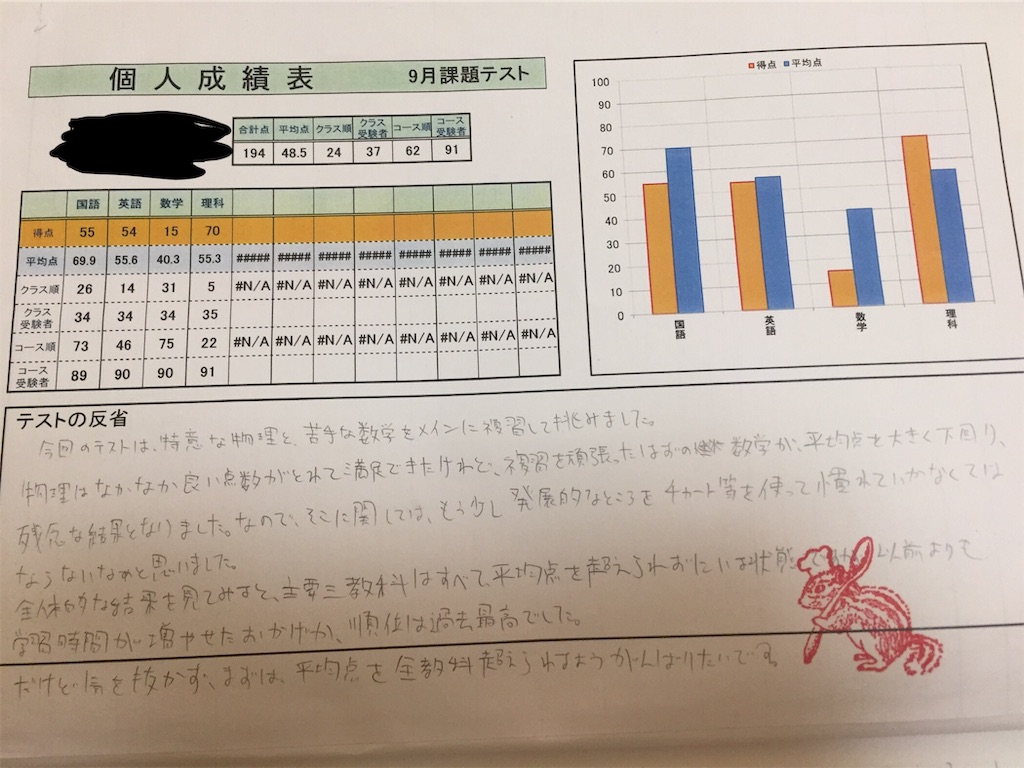 個人成績表 9月課題テスト
合計点 平均点 クラス順 クラス受験者 コース順 コース受験者
194 48.5 24 37 62 91
国語 英語 数学 理科
得点 55 54 15 70
平均点 69.9 55.6 40.3 55.3 ##### ##### ##### ##### ##### ##### ##### #####
クラス順 26 14 31 5 #N/A #N/A #N/A #N/A #N/A #N/A #N/A #N/A
クラス受験者 34 34 34 35
コース順 73 46 75 22 #N/A #N/A #N/A #N/A #N/A #N/A #N/A #N/A
コース受験者 89 90 90 91
得点 平均点
100
90
80
70
60
50
40
30
20
10
0
国語 英語 数学 理科
テストの反省
今回のテストは、特意な物理と、苦手な数学をメインに複習して挑みました。
物理はなかなか良い点数がとれて満足できたけれど、複習を頑張ったはずの数学が、平均点を大きく下回り、
残念な結果となりました。なので、そこに関しては、もう少し発展的なところをチャート等を使って慣れていかなくては
ならないなぁと思いました。
全体的な結果を見てみると、主要三教科はすべて、平均点を超えられずにいる状態 以前よりも
学習時間が増やせたおかげか、順位は過去最高でした。
だけど気を抜かず、まずは、平均点を全教科超えられるようがんばりたいです。